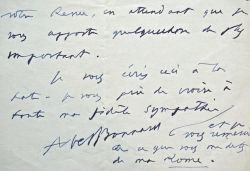 votre Revue, en attendant que je
vous apporte quelque chose de plus
important.
Je vous écris ceci à la
hâte - je vous prie de croire à
toute ma fidèle sympathie
Abel Bonnard
et je
vous remercie
de ce que vous me dites
de ma Rome.